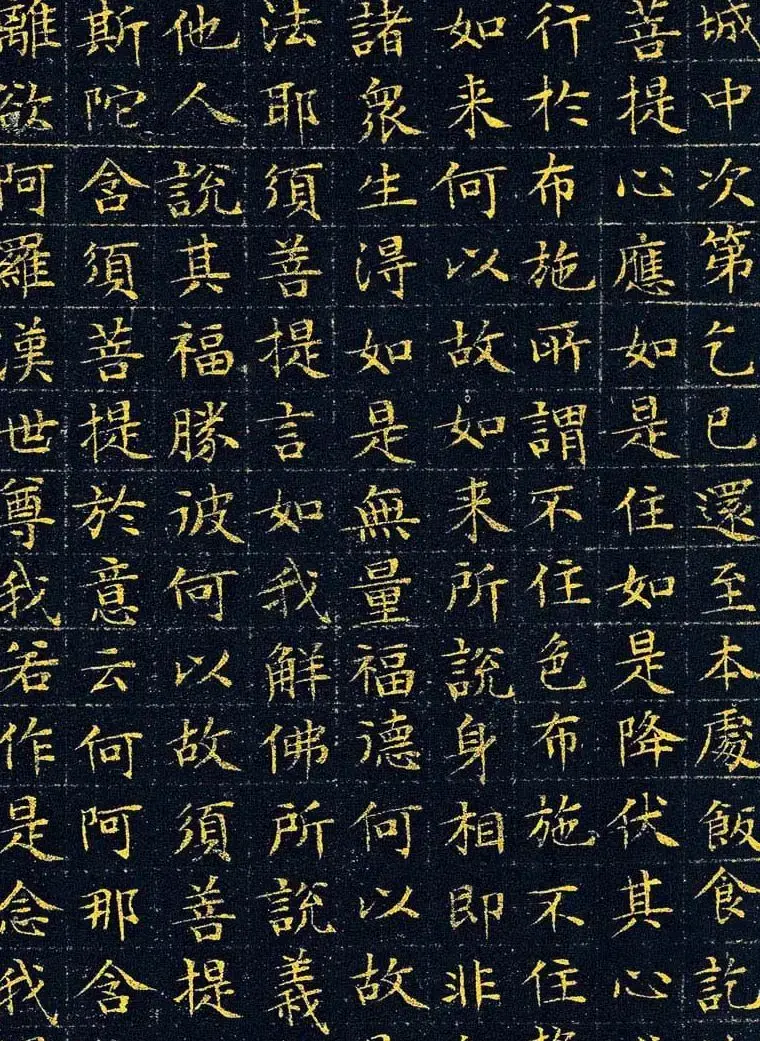 城中次第乞已還至本處飯食訖
菩提心應如是住如是降伏其心
行於布施所謂不住色布施不住
如来何以故如来所說身相即非
諸衆生得如是無量福德何以故
法耶須善提言如我解佛所說義
他人說其福勝彼何以故須善提
斯陀含須菩提於意云何阿那含
離欲阿羅漢世尊我若作是念我